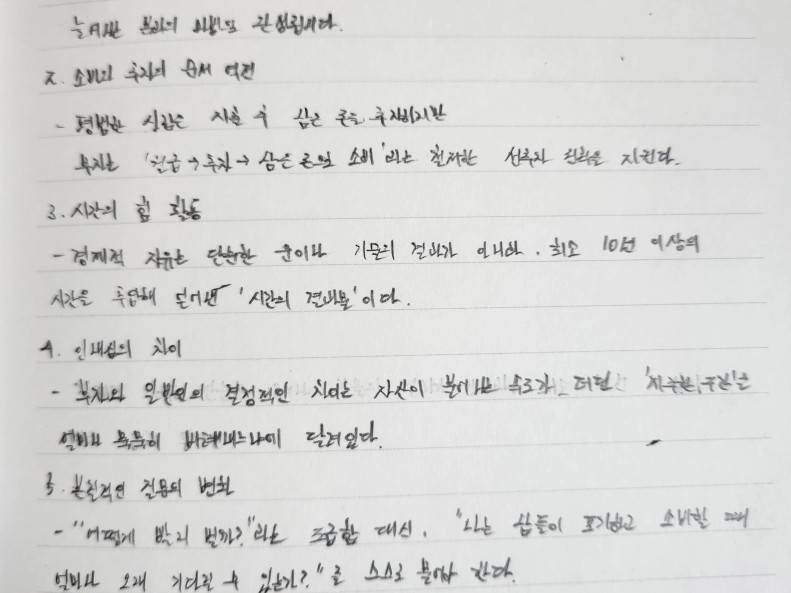 늘리는 본인의 관성입니다.
2. 소비와 투자의 순서 역전
- 평범한 사람은 지출 후 남은 돈을 투자하지만
부자는 '월급 → 투자 → 남은 돈으로 소비'라는 철저한 선투자 원칙을 지킨다.
3. 시간의 힘 활용
- 경제적 자유는 단순한 운이나 기분의 결과가 아니라, 최소 10년 이상의
시간을 투입해 얻어낸 '시간의 결과물'이다.
4. 인내심의 차이
- 부자와 일반인의 결정적인 차이는 자산이 불어나는 속도가 더딘 '지루한 구간'을
얼마나 묵묵히 버텨내느냐에 달려있다.
5. 본질적인 질문의 변화
- "어떻게 빨리 벌까?"라는 조급함 대신, "나는 남들이 포기하고 소비할 때
얼마나 오래 기다릴 수 있는가?"를 스스로 물어야 한다.